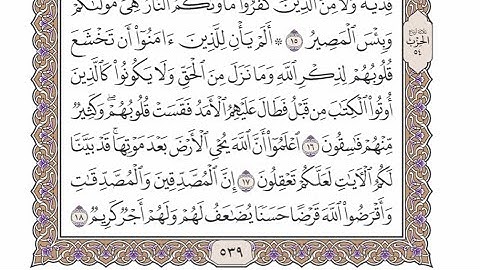 فِدْيَةٌ وَلَا مِنَ ٱلَّذِينَ كَفَرُواْ مَأْوَىٰكُمُ ٱلنَّارُ هِيَ مَوْلَىٰكُمْ
وَبِئْسَ ٱلْمَصِيرُ ١٥ ۞ أَلَمْ يَأْنِ لِلَّذِينَ ءَامَنُوٓاْ أَن تَخْشَعَ
قُلُوبُهُمْ لِذِكْرِ ٱللَّهِ وَمَا نَزَلَ مِنَ ٱلْحَقِّ وَلَا يَكُونُواْ كَٱلَّذِينَ
أُوتُواْ ٱلْكِتَٰبَ مِن قَبْلُ فَطَالَ عَلَيْهِمُ ٱلْأَمَدُ فَقَسَتْ قُلُوبُهُمْ ۖ وَكَثِيرٌ
مِّنْهُمْ فَٰسِقُونَ ١٦ ٱعْلَمُوٓاْ أَنَّ ٱللَّهَ يُحْيِ ٱلْأَرْضَ بَعْدَ مَوْتِهَا ۚ قَدْ بَيَّنَّا
لَكُمُ ٱلْأَيَٰتِ لَعَلَّكُمْ تَعْقِلُونَ ١٧ إِنَّ ٱلْمُصَّدِّقِينَ وَٱلْمُصَّدِّقَٰتِ
وَأَقْرَضُواْ ٱللَّهَ قَرْضًا حَسَنًا يُضَٰعَفُ لَهُمْ وَلَهُمْ أَجْرٌ كَرِيمٌ ١٨
الحِزْب
٥٤
٥٣٩